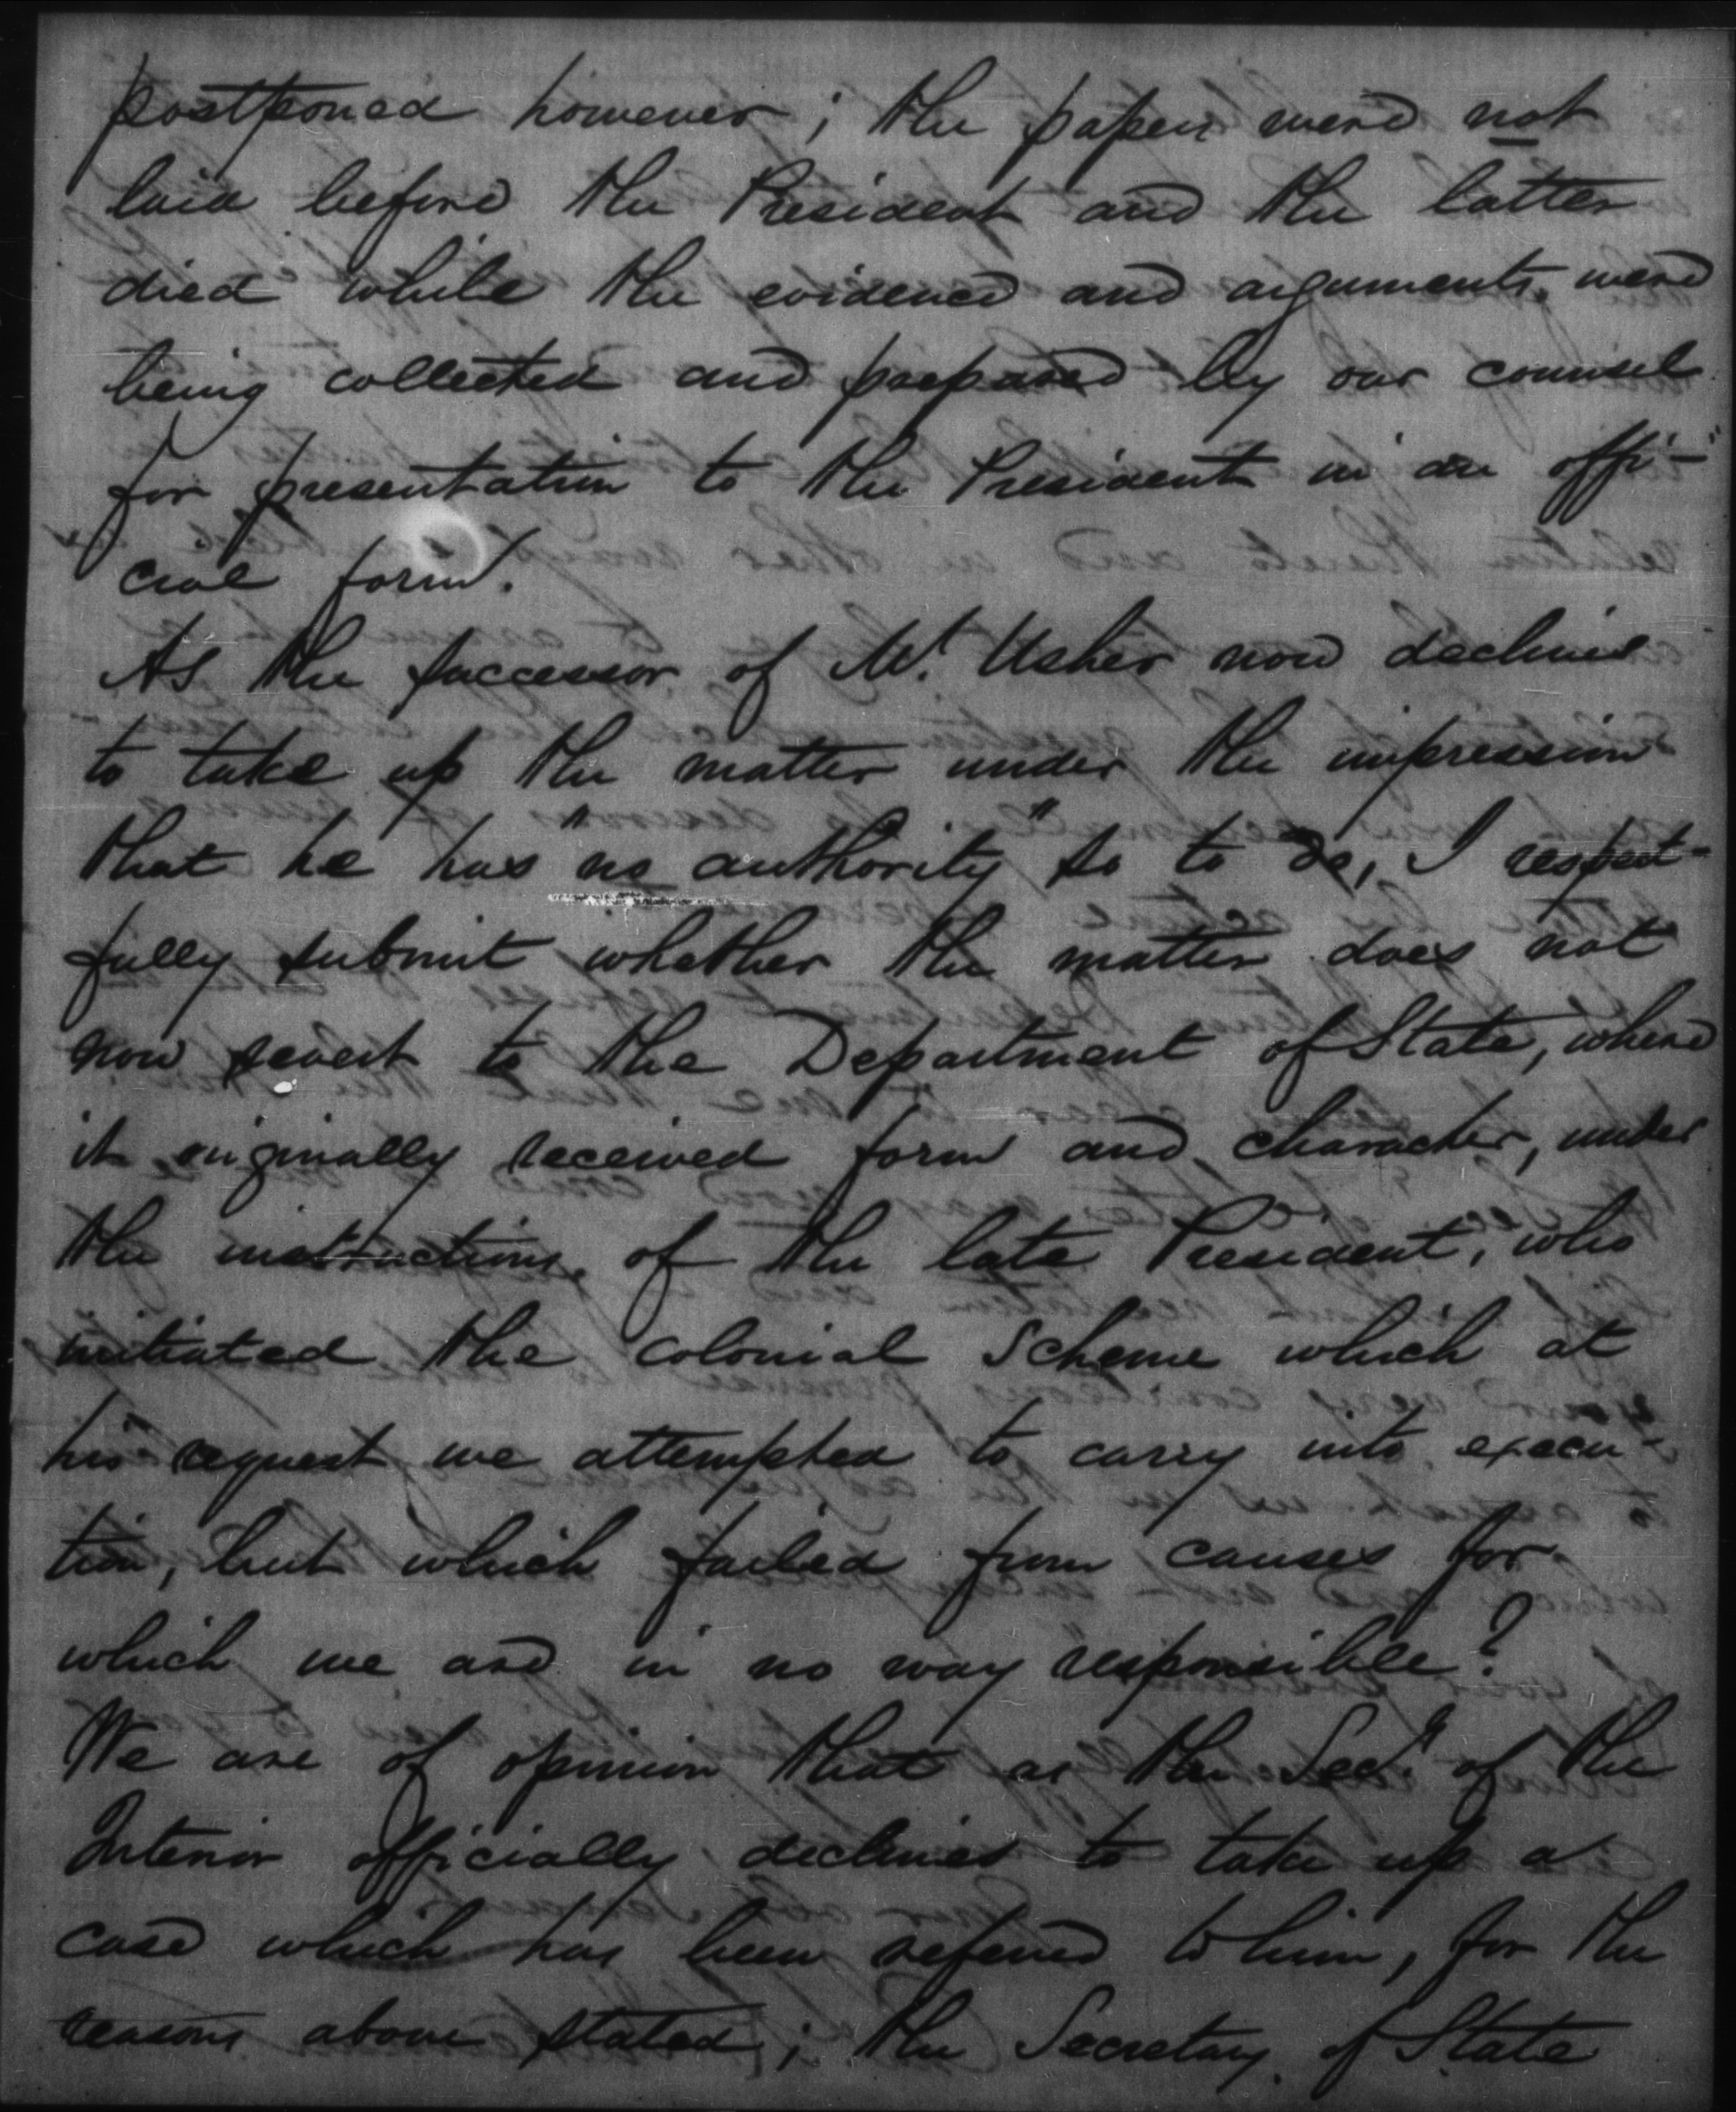 postponed however; the papers were not
laid before the President and the latter
died while the evidence and arguments were
being collected and prepared by our counsel
for presentation to the President in an offi-
cial form.
As the successor of Mr. Usher now declines
to take up the matter under the impression
that he has "no authority" so to do, I respect-
fully submit whether the matter does not
now revert to the Department of State, where
it originally received form and character, under
the instructions of the late President, who
initiated the colonial scheme which at
his request we attempted to carry into execu-
tion, but which failed from causes for
which we are in no way responsible?
We are of opinion that as the Secy. of the
Interior officially declines to take up a
case which has been referred to him, for the
reasons above stated; the Secretary of State